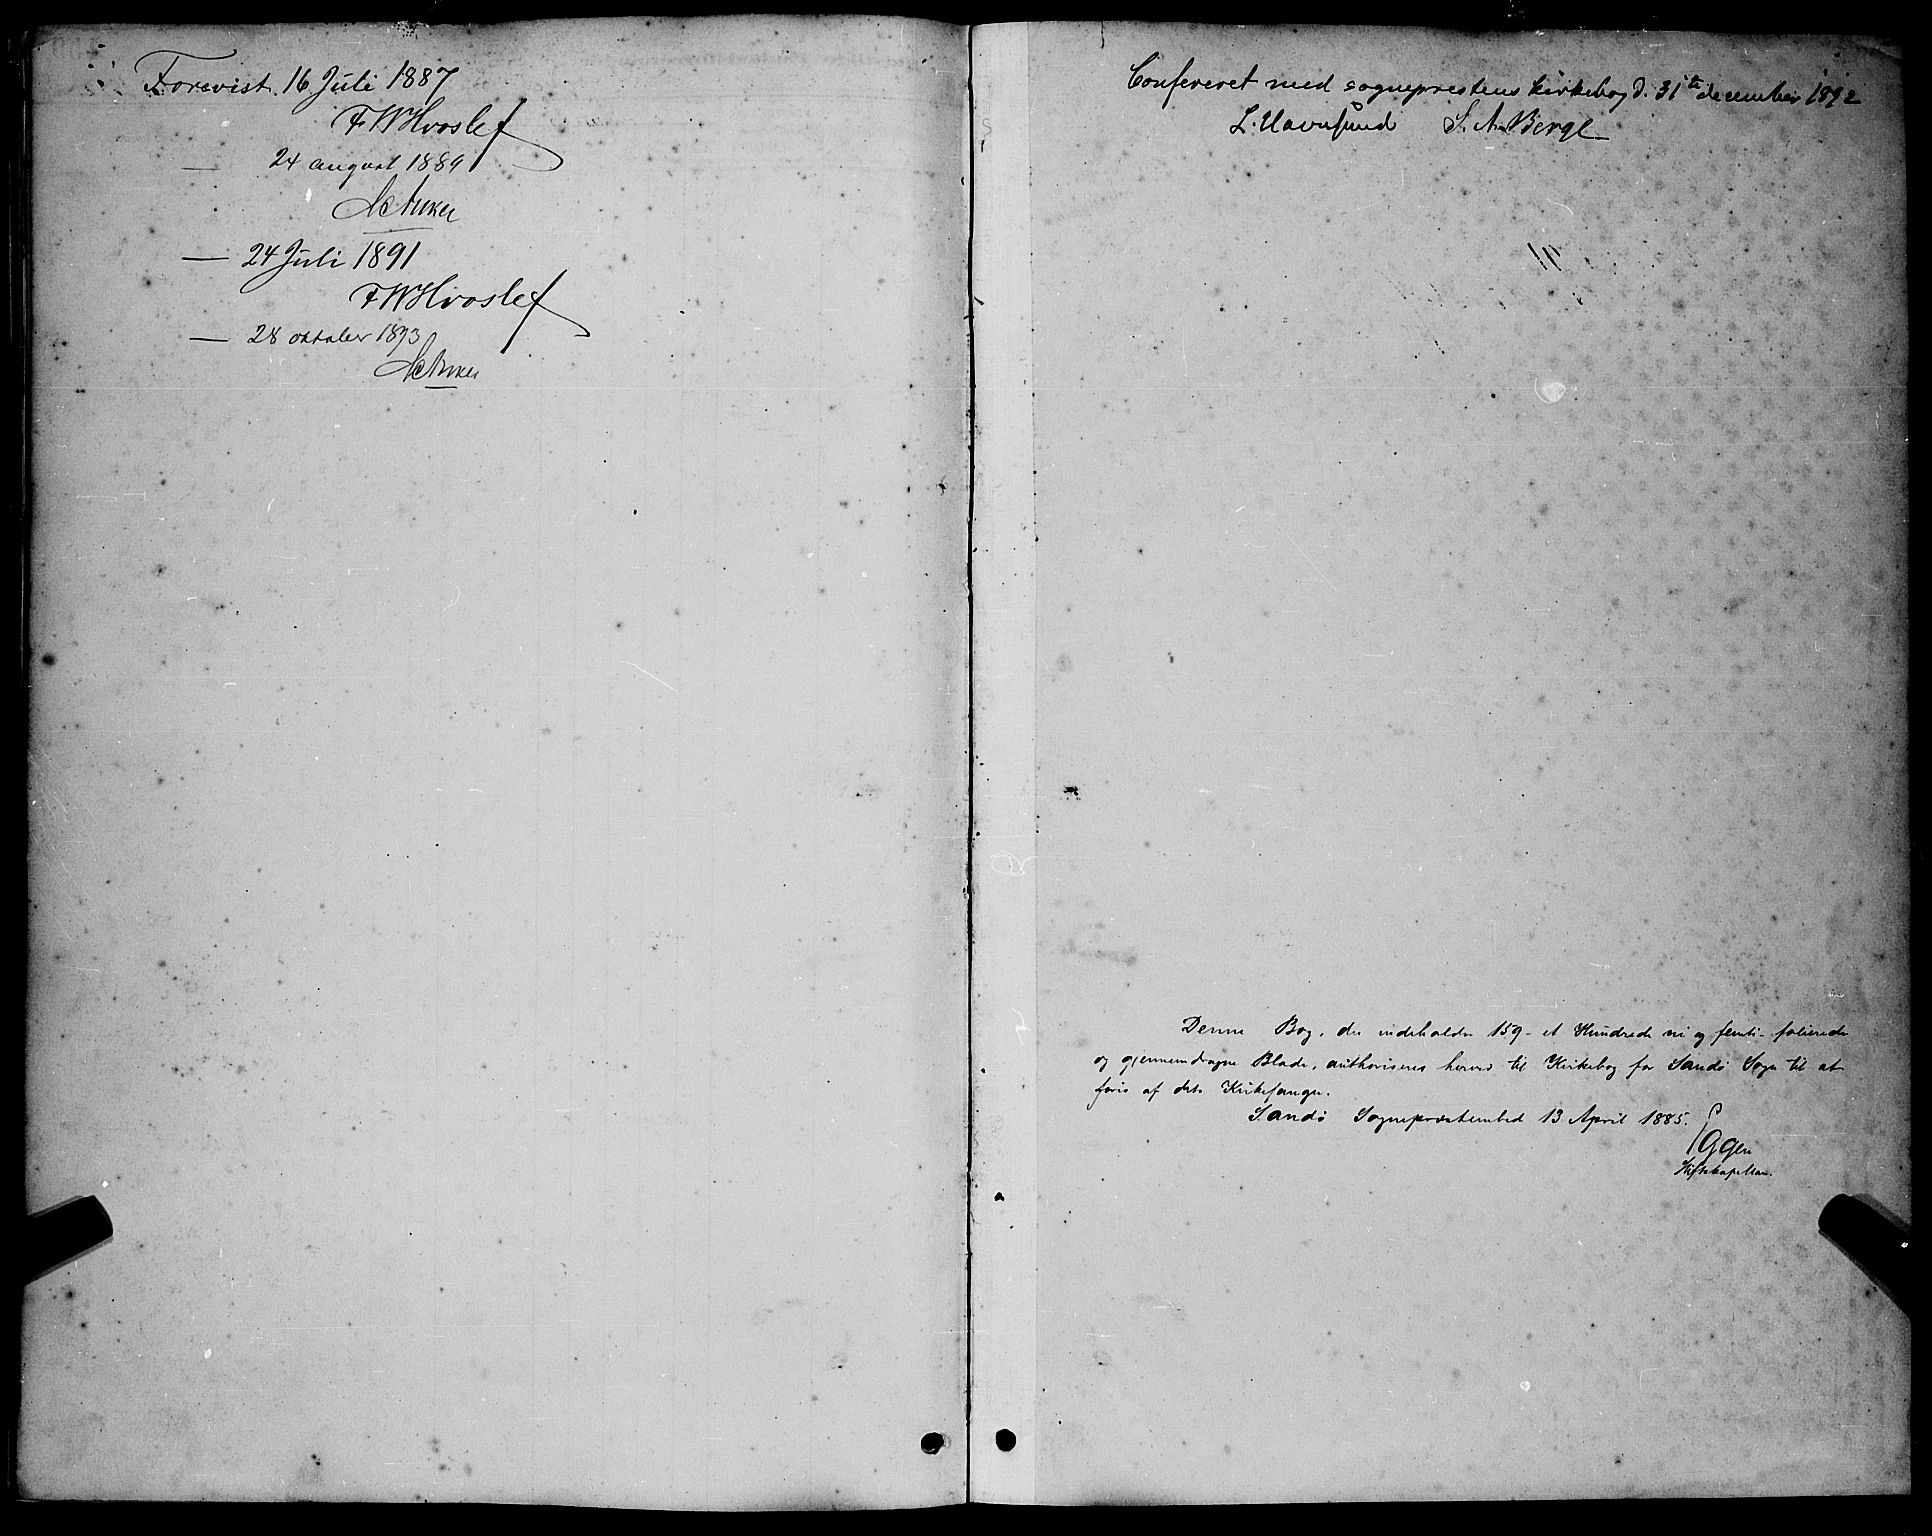 Forevist 16 Juli 1887
FWHvoslef
— 24 august 1889
Chr Anker
— 24 Juli 1891
FWHvoslef
— 28 oktober 1893
Anker
Confereret med sogneprestens kirkebog d. 31te december 1892
L. Havnsund S. A. Berge
Denne Bog, der indeholder 159 - et Hundrede ni og femti - folierede
og gjennemdragne Blade, authoriseres herved til Kirkebog for Sandö Sogn til at
føres af dets Kirkesanger.
Sandö Sogneprestembed 13 April 1885.
Eggen
Stiftskapellan.